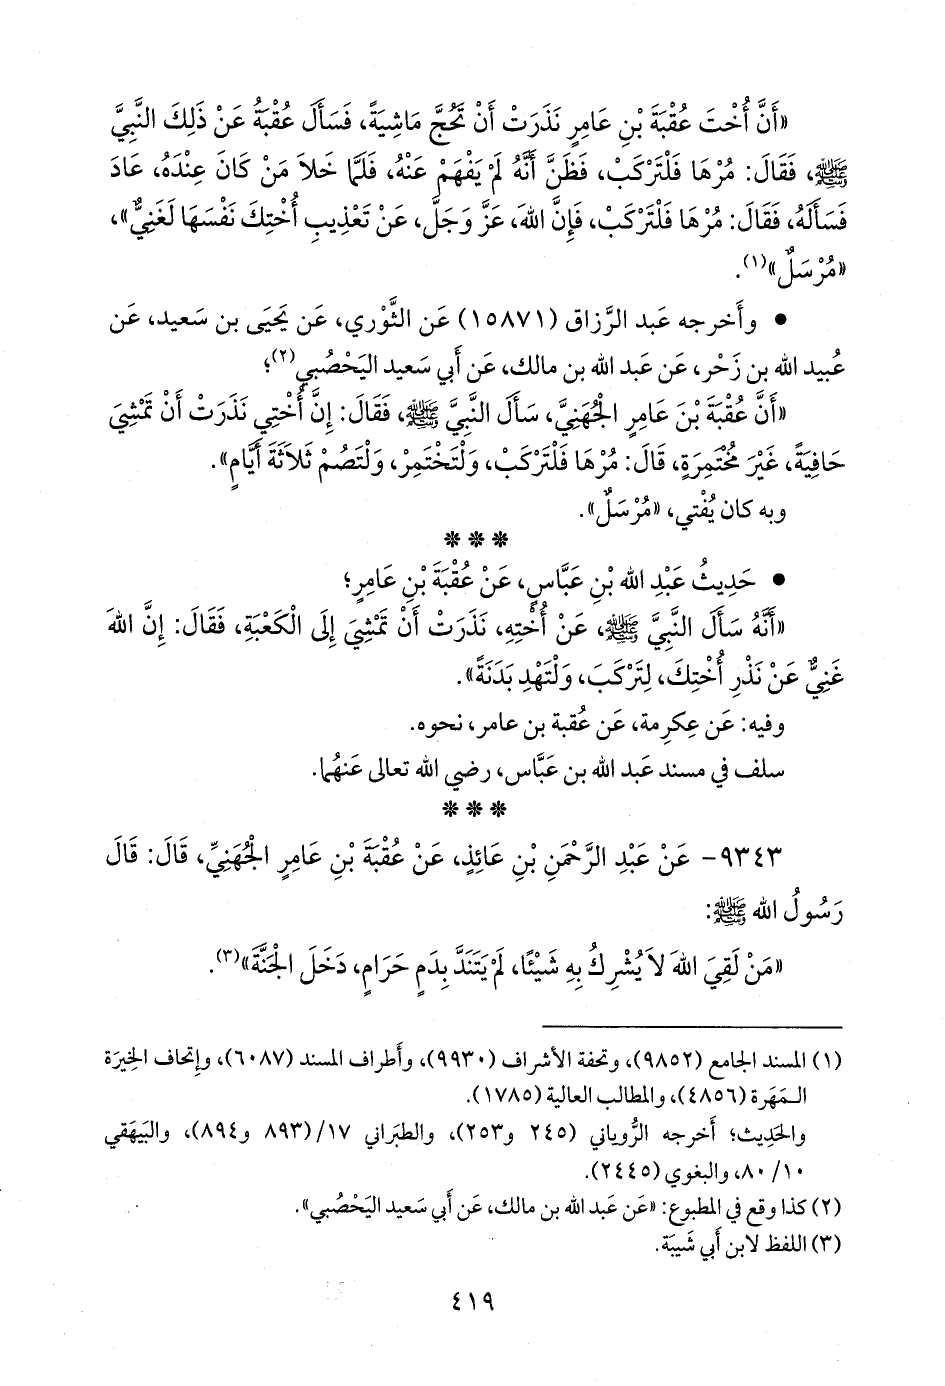 «أَنَّ أُخْتَ عُقْبَةَ بْنِ عَامِرٍ نَذَرَتْ أَنْ تَحُجَّ مَاشِيَةً، فَسَأَلَ عُقْبَةُ عَنْ ذَلِكَ النَّبِيَّ
ﷺ، فَقَالَ: مُرْهَا فَلْتَرْكَبْ، فَظَنَّ أَنَّهُ لَمْ يَفْهَمْ عَنْهُ، فَلَمَّا خَلاَ مَنْ كَانَ عِنْدَهُ، عَادَ
فَسَأَلَهُ، فَقَالَ: مُرْهَا فَلْتَرْكَبْ، فَإِنَّ اللهَ، عَزَّ وَجَلَّ، عَنْ تَعْذِيبِ أُخْتِكَ نَفْسَهَا لَغَنِيٌّ»،
«مُرْسَلٌ»(١).
• وأَخرجه عَبد الرَّزاق (١٥٨٧١) عَن الثَّوري، عَن يَحيَى بن سَعيد، عَن
عُبيد الله بن زَحْر، عَن عَبد الله بن مالك، عَن أَبي سَعيد اليَحْصُبي(٢)؛
«أَنَّ عُقْبَةَ بْنَ عَامِرٍ الْجُهَنِيَّ، سَأَلَ النَّبِيَّ ﷺ، فَقَالَ: إِنَّ أُخْتِي نَذَرَتْ أَنْ تَمْشِيَ
حَافِيَةً، غَيْرَ مُخْتَمِرَةٍ، قَالَ: مُرْهَا فَلْتَرْكَبْ، وَلْتَخْتَمِرْ، وَلْتَصُمْ ثَلاَثَةَ أَيَّامٍ».
وبه كان يُفْتي، «مُرْسَلٌ».
***
• حَدِيثُ عَبْدِ الله بْنِ عَبَّاسٍ، عَنْ عُقْبَةَ بْنِ عَامِرٍ؛
«أَنَّهُ سَأَلَ النَّبِيَّ ﷺ، عَنْ أُخْتِهِ، نَذَرَتْ أَنْ تَمْشِيَ إِلَى الْكَعْبَةِ، فَقَالَ: إِنَّ اللهَ
غَنِيٌّ عَنْ نَذْرِ أُخْتِكَ، لِتَرْكَبَ، وَلْتَهْدِ بَدَنَةً».
وفيه: عَن عِكرِمة، عَن عُقبة بن عامر، نحوه.
سلف في مسند عَبد الله بن عَبَّاس، رضي الله تعالى عَنهُما.
***
٩٣٤٣- عَنْ عَبْدِ الرَّحْمَنِ بْنِ عَائِذٍ، عَنْ عُقْبَةَ بْنِ عَامِرٍ الْجُهَنِيِّ، قَالَ: قَالَ
رَسُولُ الله ﷺ:
«مَنْ لَقِيَ اللهَ لاَ يُشْرِكُ بِهِ شَيْئًا، لَمْ يَتَنَدَّ بِدَمٍ حَرَامٍ، دَخَلَ الْجَنَّةَ»(٣).
(١) المسند الجامع (٩٨٥٢)، وتحفة الأشراف (٩٩٣٠)، وأَطراف المسند (٦٠٨٧)، وإتحاف الخِيرَة
المَهَرة (٤٨٥٦)، والمطالب العالية (١٧٨٥).
والحَديث؛ أخرجه الرُّوياني (٢٤٥ و٢٥٣)، والطبَراني ١٧/(٨٩٣ و٨٩٤)، والبَيهَقي
١٠/٨٠، والبغوي (٢٤٤٥).
(٢) كذا وقع في المطبوع: «عَن عَبد الله بن مالك، عَن أَبي سَعيد اليَحْصُبي».
(٣) اللفظ لابن أَبي شَيبَة.
٤١٩